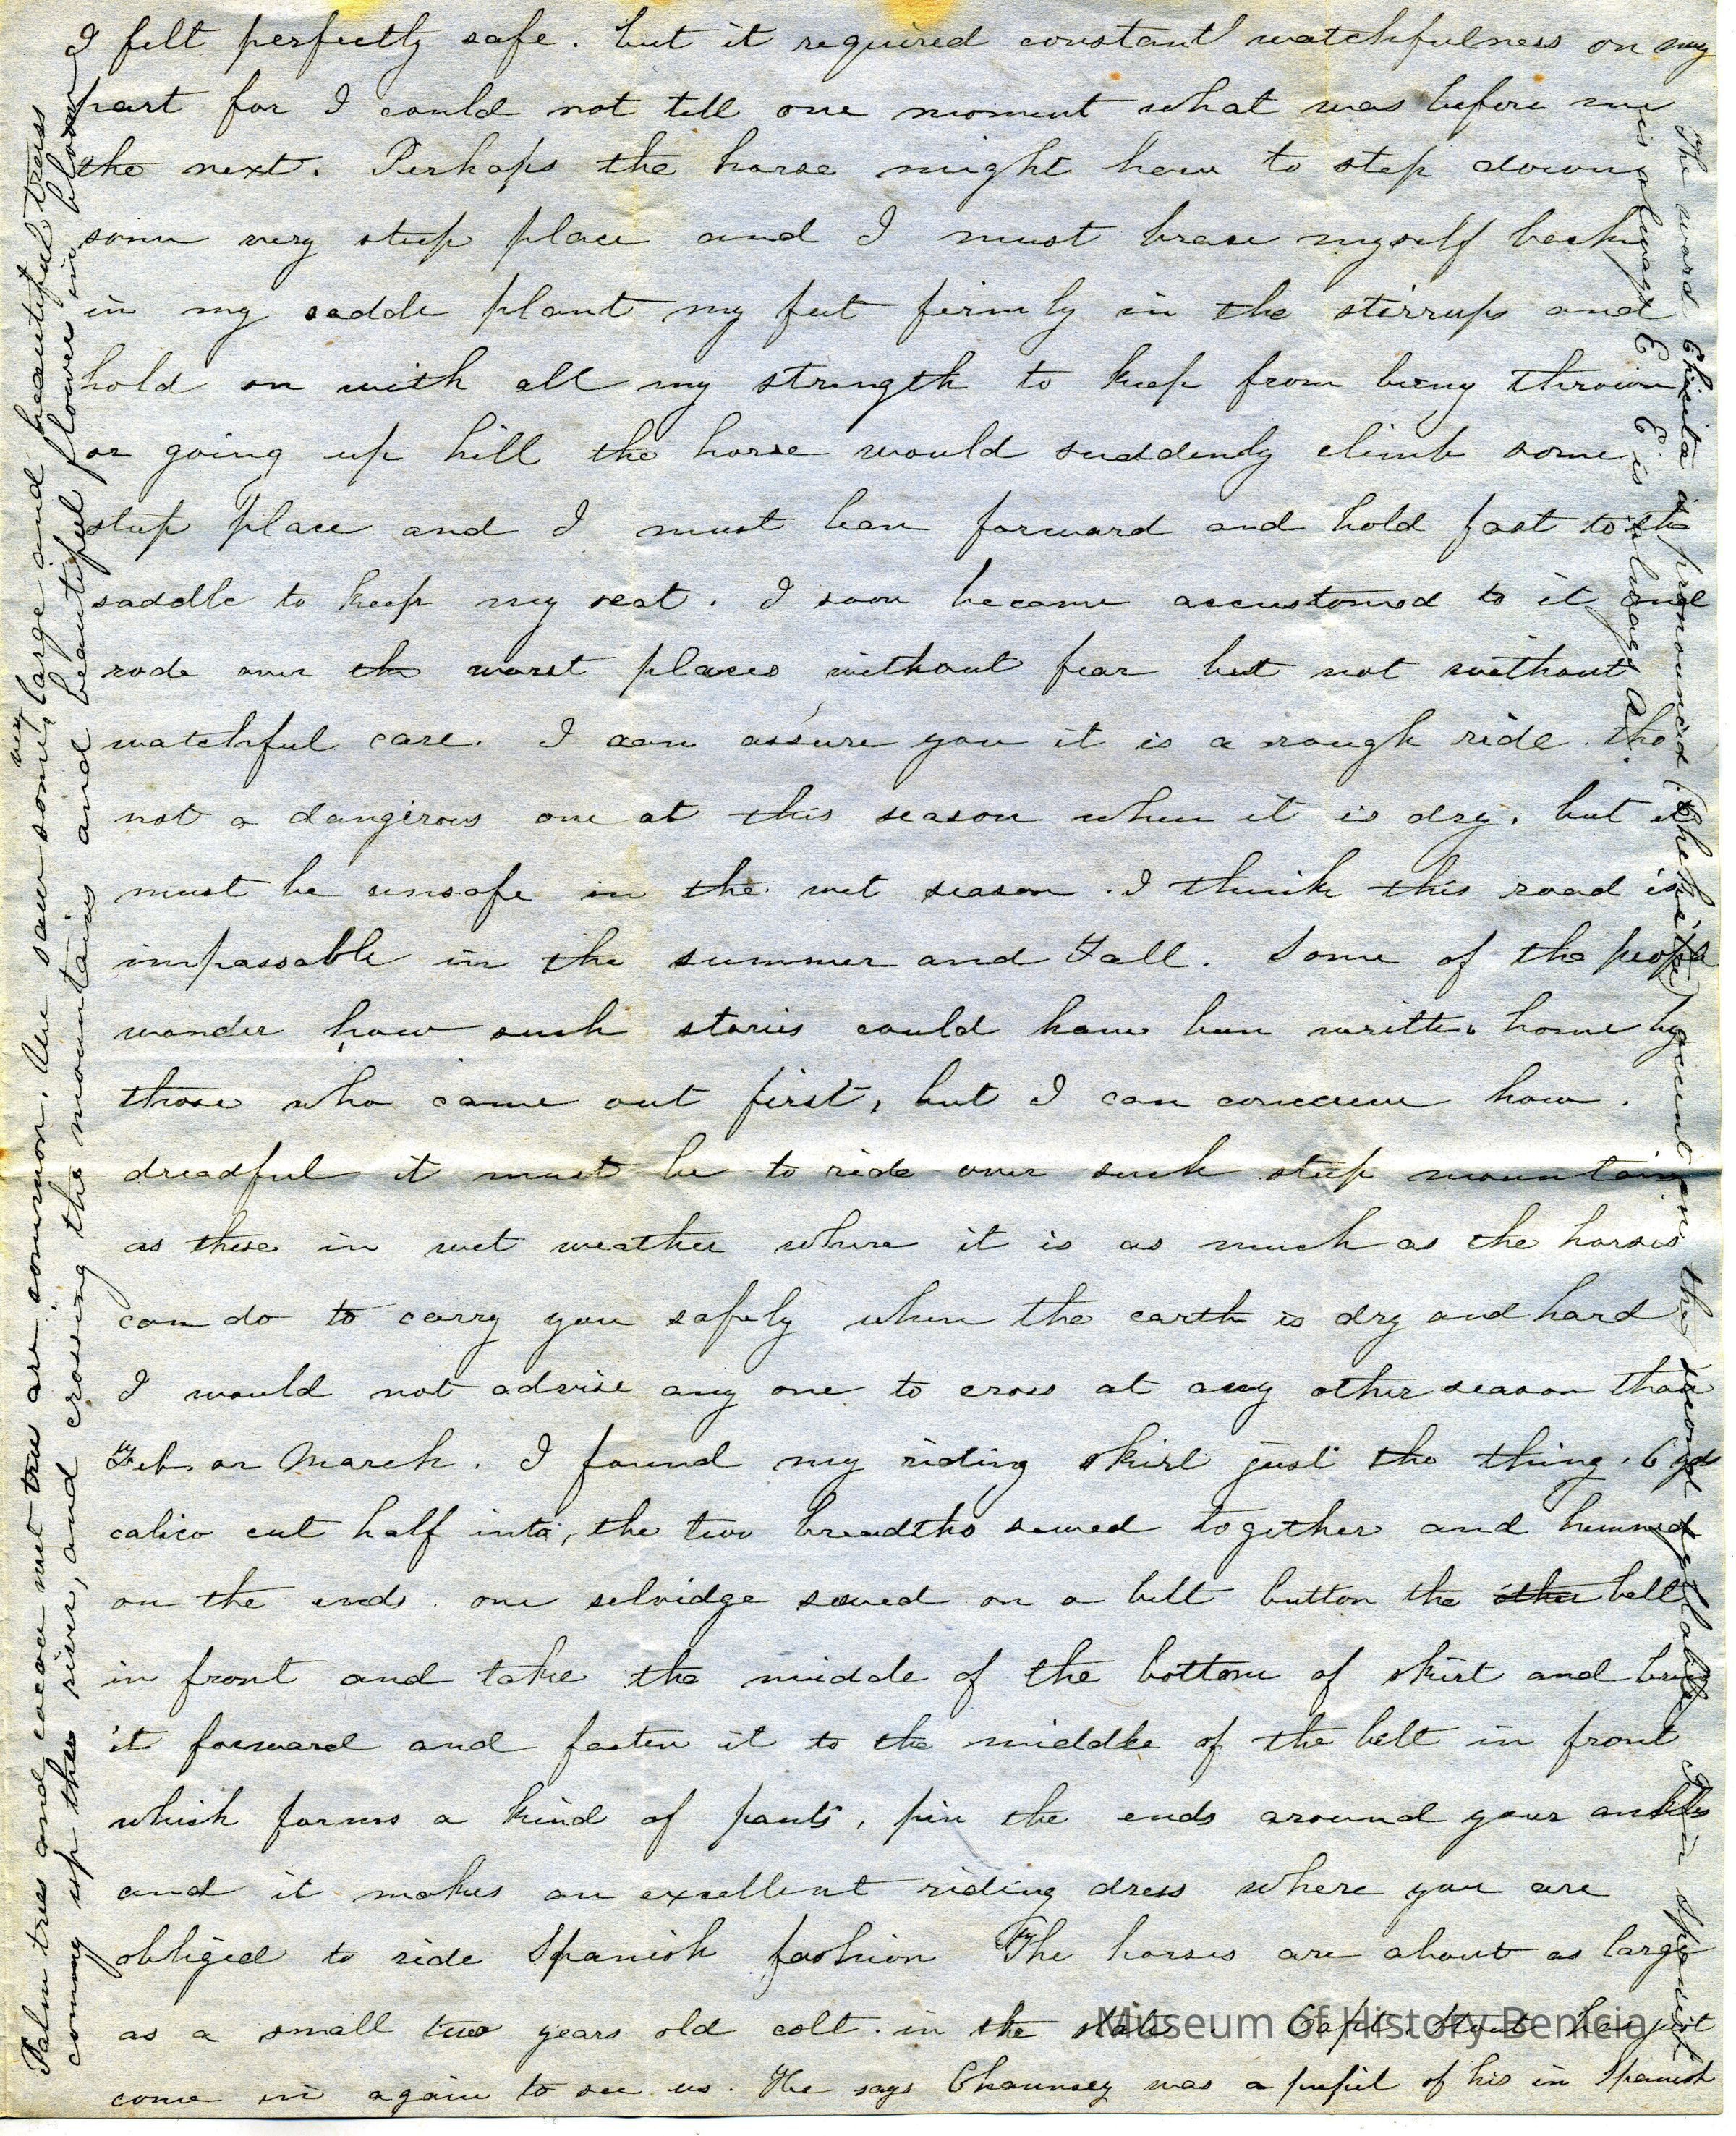 I felt perfectly safe. but it required constant watchfulness on my
part for I could not tell one moment what was before me
the next. Perhaps the horse might have to step down
some very steep place and I must brase myself back
in my saddle plant my feet firmly in the stirrups and
hold on with all my strength to keep from being thrown
or going up hill the horse would suddenly climb some
steep place and I must lean forward and hold fast to the
saddle to keep my seat. I soon became accustomed to it and
rode over the worst places without fear but not without
watchful care. I can assure you it is a rough ride. tho
not a dangerous one at this season when it is dry. but it
must be unsafe in the wet season. I think this road is
impassable in the summer and Fall. Some of the people
wonder how such stories could have been written home by
those who came out first, but I can conceive how.
dreadful it must be to ride over such steep mountains
as these in wet weather where it is as much as the horses
can do to carry you safely when the earth is dry and hard
I would not advise any one to cross at any other season than
Feb. or March. I found my riding skirt just the thing. 6 yds
calico cut half into, the two breadths sewed together and hemmed
on the ends. one selvidge sewed on a belt button the other belt
in front and take the middle of the bottom of skirt and bring
it forward and fasten it to the middle of the belt in front
which forms a kind of pants, pin the ends around your ankles
and it makes an excellent riding dress where you are
obliged to ride Spanish fashion The horses are about as large
as a small two years old colt. in the states. Capt. Stout has just
come in again to see us. He says Chaunsey was a pupil of his in Spanish
Palm trees and cocoa nut tree are common. We saw some very large and beautiful trees
coming up the river, and crossing the mountains and beautiful flowers in bloom
The word Chicita is pronounced (Chekeita) accent on the second syllable I in Spanish
is always E E is always A.
Museum of History Benicia